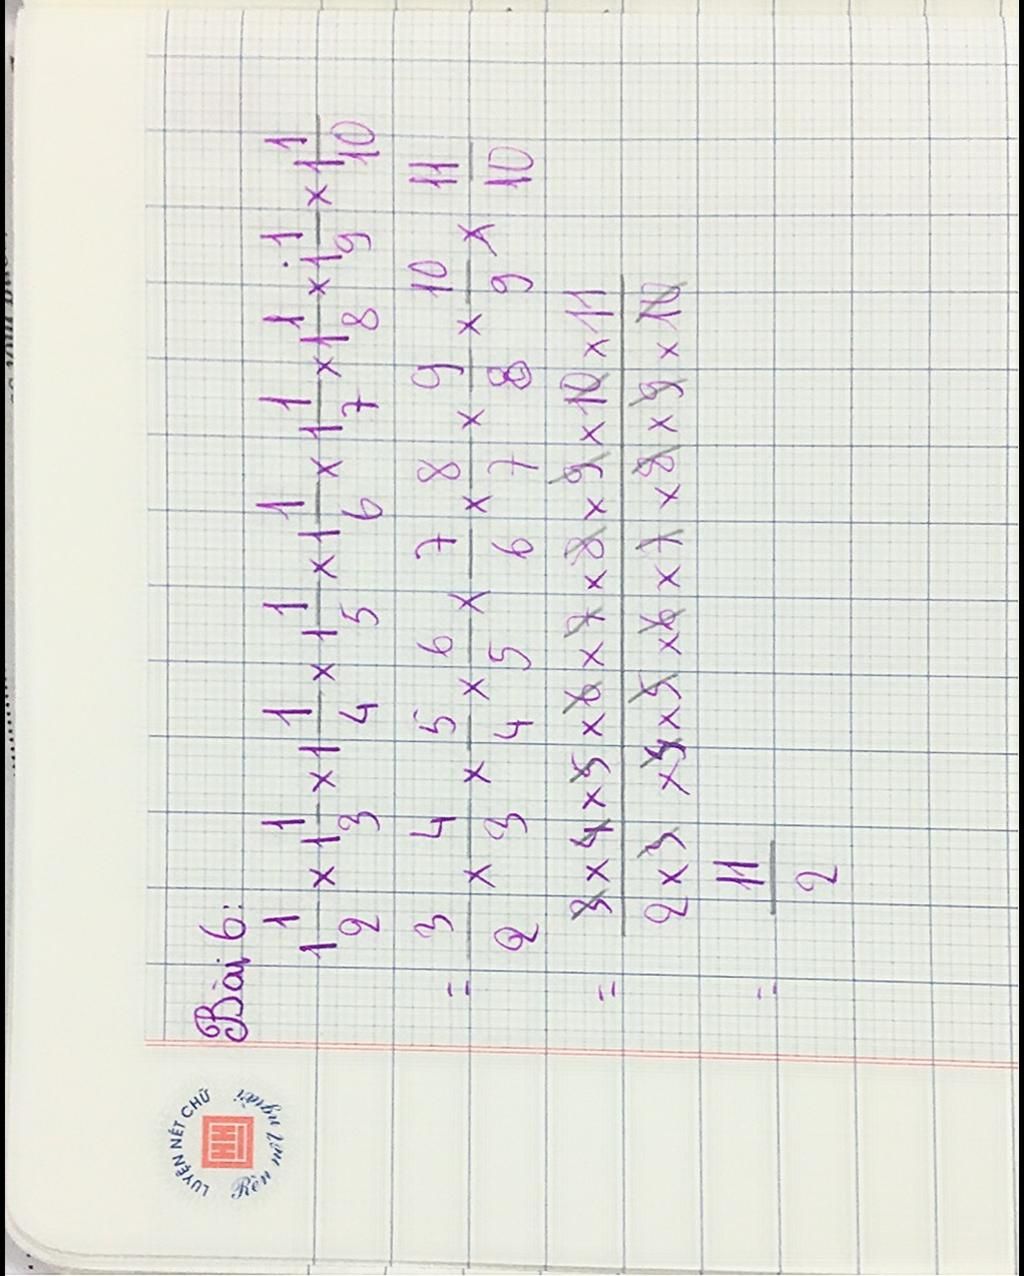 Bài 6:
1 1/2 × 1 1/3 × 1 1/4 × 1 1/5 × 1 1/6 × 1 1/7 × 1 1/8 × 1 1/9 × 1 1/10
= 3/2 × 4/3 × 5/4 × 6/5 × 7/6 × 8/7 × 9/8 × 10/9 × 11/10
= 3 × 4 × 5 × 6 × 7 × 8 × 9 × 10 × 11 / 2 × 3 × 4 × 5 × 6 × 7 × 8 × 9 × 10
= 11/2
LUYỆN NÉT CHỮ
Rèn nết người